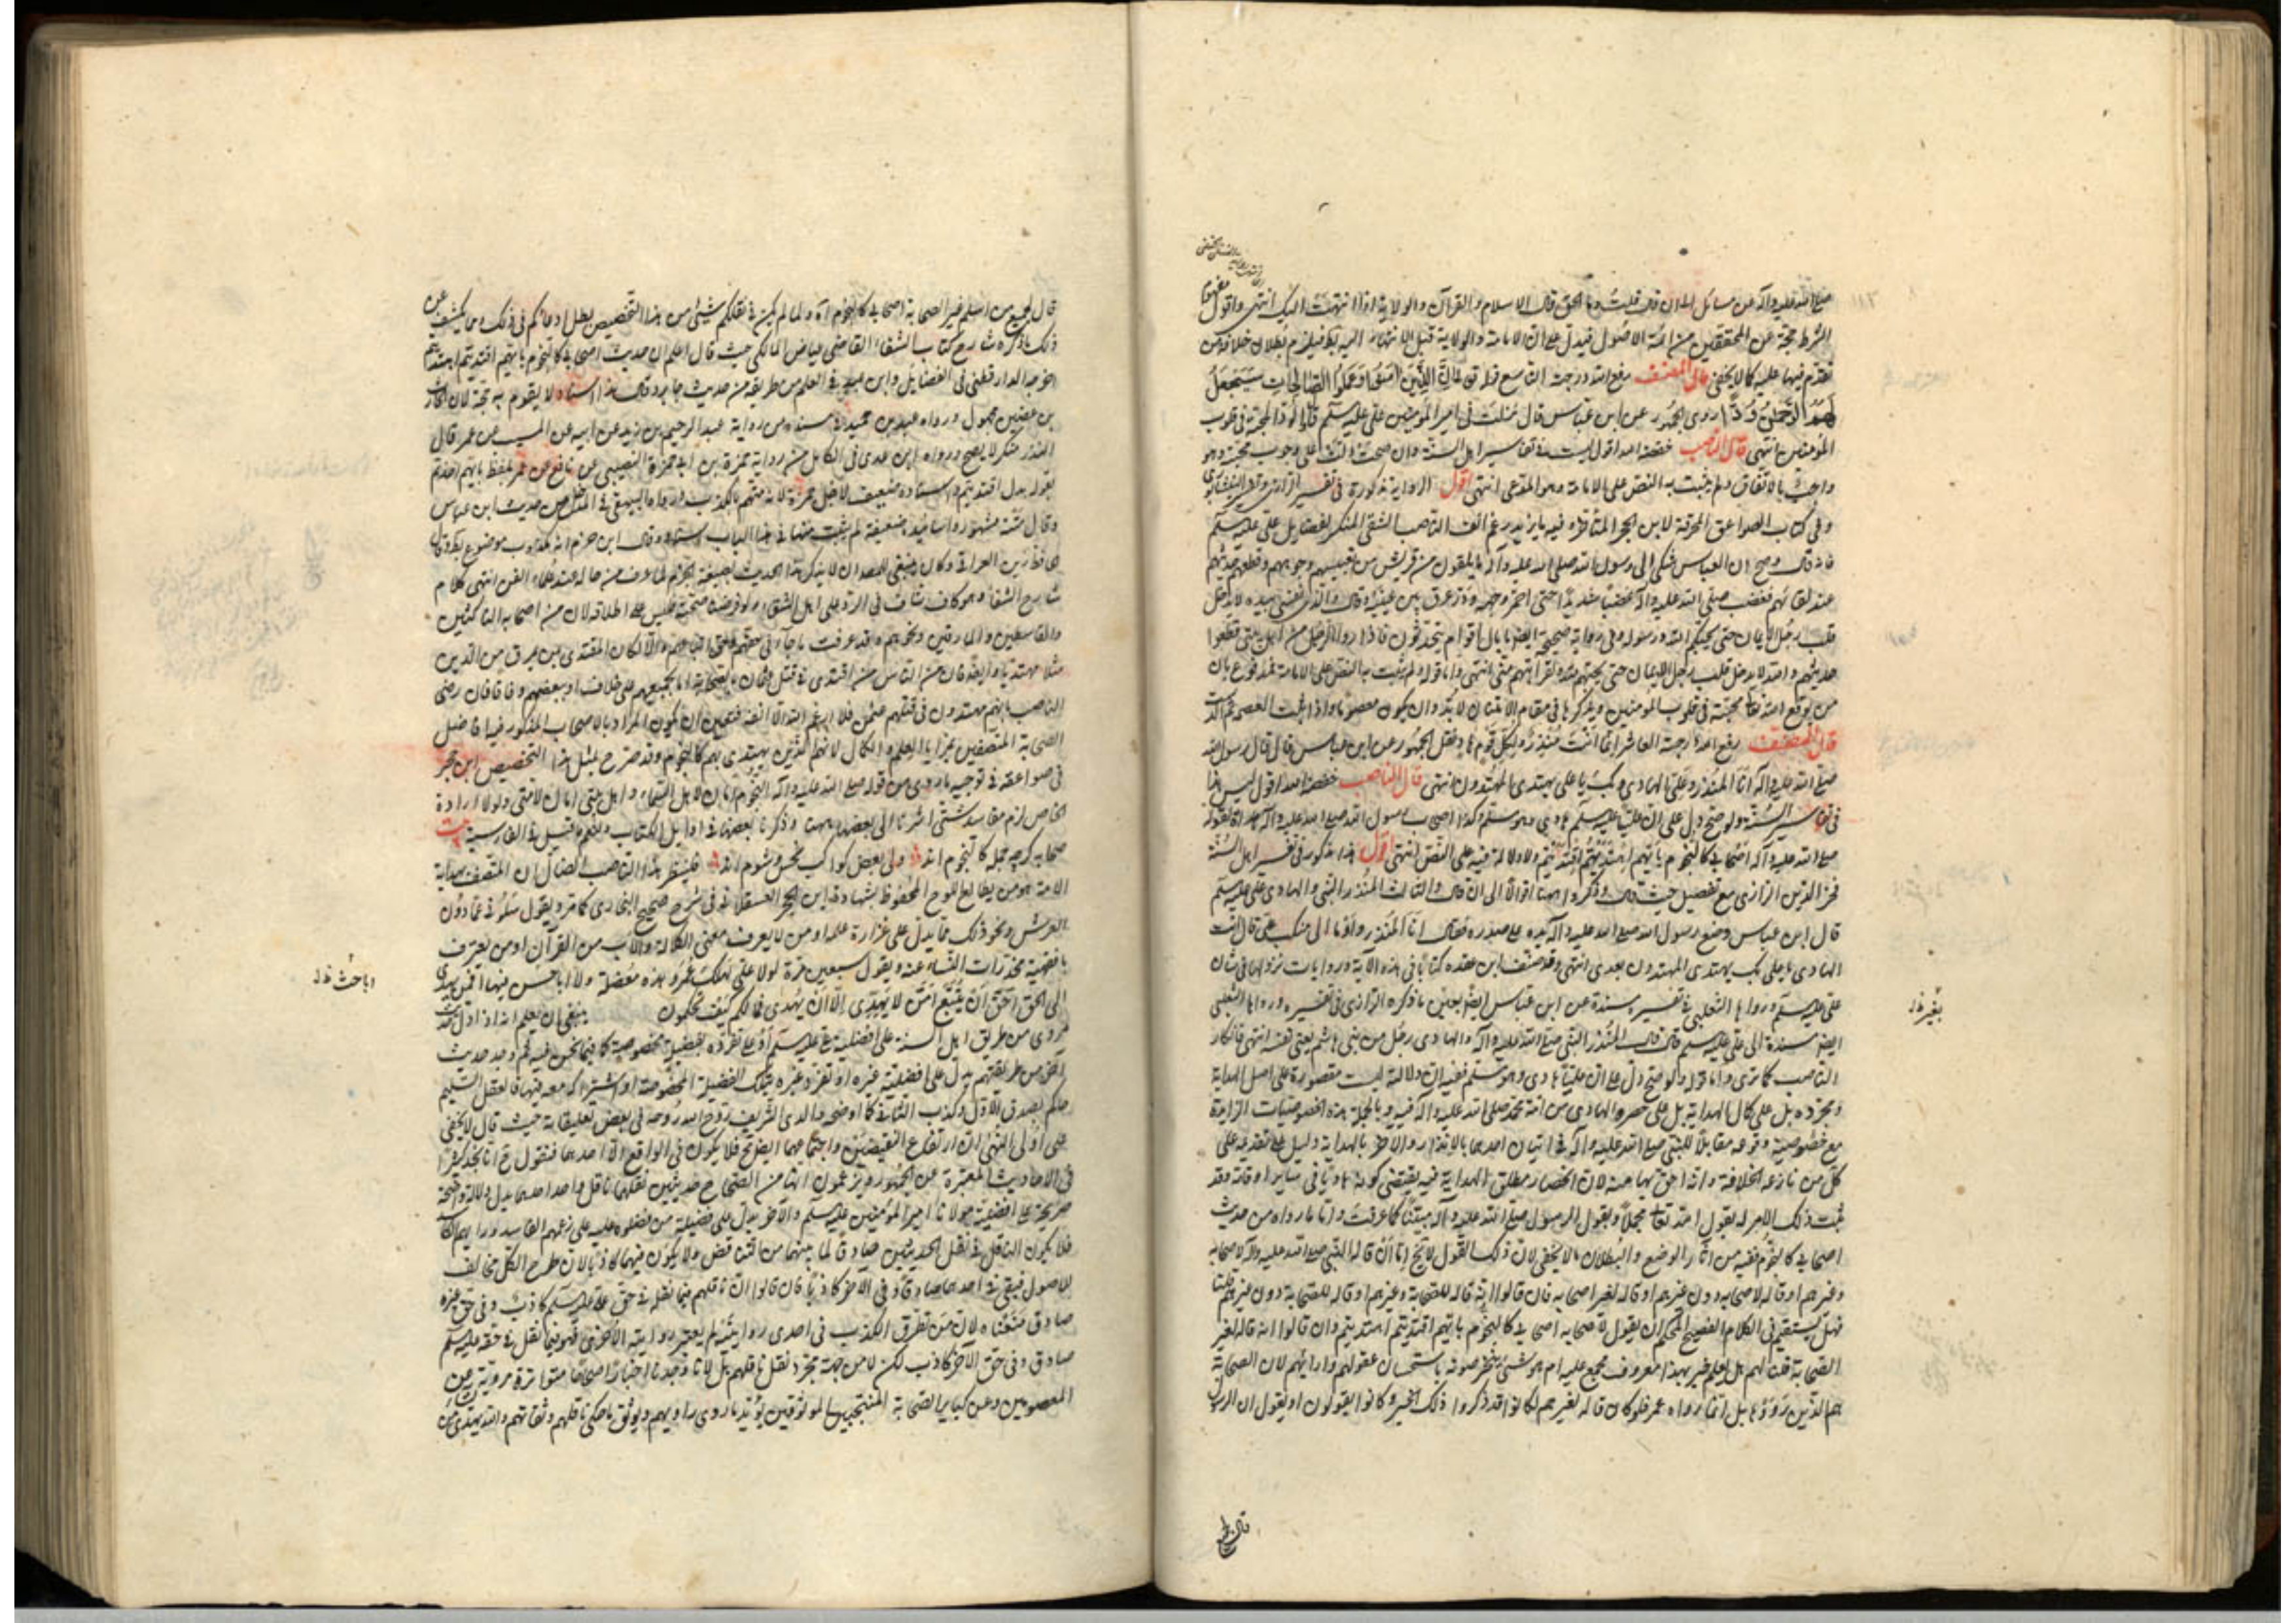 صلى الله عليه وآله عن مسائل إلى ان قال قلت وما الحق قال الاسلام والقرآن والولاية اذا انتهت اليك انتهى واقول مفهوم
الشرط حجة عند المحققين من ائمة الاصول فيدل على ان الامامة والولاية قبل الانتهاء اليه فيلزم بطلان خلافة من
تقدم فيها عليه كما لا يخفى قال المصنف رفع الله درجته التاسع قوله تعالى ان الذين آمنوا وعملوا الصالحات سيجعل
لهم الرحمن ودا روى الجمهور عن ابن عباس قال نزلت في امير المؤمنين علي عليه السلم قال الود المحبة في قلوب
المؤمنين انتهى قال الناصب خفضه الله اقول ليست في تفاسير اهل السنة وان صحت دلت على وجوب محبته وهو
واجب بالاتفاق ولم يثبت به النص على الامامة وهو المدعى انتهى اقول الرواية مذكورة في تفسير الرازي وتفسير النيشابوري
وفي كتاب الصواعق المحرقة لابن الحجر المتأخر وفيه ما يزيد رغم انف الناصب الشقي المنكر لفضايل علي عليه السلم
فانه قال وصح ان العباس شكى الى رسول الله صلى الله عليه وآله ما يلقون من قريش من تعبيسهم وجوههم وقطعهم حديثهم
عند لقائهم فغضب صلى الله عليه وآله غضبا شديدا حتى احمر وجهه ودر عرق بين عينيه وقال والذي نفسي بيده لا يدخل
قلب رجل الايمان حتى يحبكم لله ورسوله وفي رواية صحيحة ايضا ما بال اقوام يتحدثون فاذا رأوا الرجل من اهل بيتي قطعوا
حديثهم والله لا يدخل قلب رجل الايمان حتى يحبهم لله ولقرابتهم مني انتهى واما قوله ولم يثبت به النص على الامامة فمدفوع بان
من يوقع الله تعالى محبته في قلوب المؤمنين ويذكرها في مقام الامتنان لابد وان يكون معصوما واذا ثبت العصمة
قال المصنف رفع الله درجته العاشر انما انت منذر ولكل قوم هاد نقل الجمهور عن ابن عباس قال قال رسول الله
صلى الله عليه وآله انا المنذر وعلي الهادي وبك يا علي يهتدي المهتدون انتهى قال الناصب خفضه الله اقول ليس هذا
في تفاسير السنة ولو صح دل على ان عليا عليه السلم هادي وهو مسلم وكذا اصحاب رسول الله صلى الله عليه وآله هداة لقوله
صلى الله عليه وآله اصحابي كالنجوم بايهم اقتديتم اهتديتم ولا دلالة فيه على النص انتهى اقول هذا مذكور في تفسير اهل السنة
فخر الدين الرازي مع تفصيل حيث قال وذكروا ههنا اقوالا الى ان قال والثالث المنذر النبي والهادي علي عليه السلم
قال ابن عباس وضع رسول الله صلى الله عليه وآله يده على صدره فقال انا المنذر واومأ الى منكب علي قال انت
الهادي يا علي بك يهتدي المهتدون بعدي انتهى وقد صنف ابن عقده كتابا في هذه الآية وروايات نزولها في شان
علي عليه السلم ورواها الثعلبي في تفسيره مسندة عن ابن عباس ايضا بعين ما ذكره الرازي في تفسيره ورواها الثعلبي
ايضا مسندة الى علي عليه السلم قال المنذر النبي صلى الله عليه وآله والهادي رجل من بني هاشم يعني نفسه انتهى فانكار
الناصب كما ترى واما قوله ولو صح دل على ان عليا هادي وهو مسلم ففيه ان دلالته ليست مقصورة على اصل الهداية
ومجرده بل على كمال الهداية بل على حصر الهادي من امة محمد صلى الله عليه وآله فيه وبالجملة هذه الخصوصيات الزايدة
مع خصوصية وقوعه مقابلا للنبي صلى الله عليه وآله في اتيان احدهما بالانذار والآخر بالهداية دليل على تقدمه على
كل من نازعه الخلافة وانه احق بها منه لان انحصار مطلق الهداية فيه يقتضي كونه هاديا في ساير اوقاته وقد
ثبت ذلك الامر له بقول الله تعالى مجملا وبقول الرسول صلى الله عليه وآله مبينا كما عرفت واما ما رواه من حديث
اصحابي كالنجوم ففيه من آثار الوضع والبطلان ما لا يخفى لان ذلك القول لا يخ اما ان قاله النبي صلى الله عليه وآله لاصحابه
وغيرهم او قاله لاصحابه دون غيرهم او قاله لغير اصحابه فان قالوا انه قاله للصحابة وغيرهم او قاله للصحابة دون غيرهم قلنا
فهل يستقيم في الكلام الفصيح المحكم ان يقول لاصحابه اصحابي كالنجوم بايهم اقتديتم اهتديتم وان قالوا انه قاله لغير
الصحابة قلنا لهم هل لعلم خبر بهذا معروف مجمع عليه ام هو شيء يتخرصونه باستحسان عقولهم وآرائهم لان الصحابة
هم الذين رووها بل انما رواه عمر فلو كان قاله لغيرهم لكانوا قد ذكروا ذلك الخبر وكانوا يقولون او يقول ان الرسول
قال لجميع
بغير ظ
قال لجميع من اسلم غير الصحابة اصحابي كالنجوم آه ولما لم يكن في نقلكم شيئ من هذا التخصيص بطل ادعائكم في ذلك ومما يكشف عن
ذلك ما ذكره شارح كتاب الشفاء القاضي عياض المالكي حيث قال اعلم ان حديث اصحابي كالنجوم بايهم اقتديتم اهتديتم
اخرجه الدارقطني في الفضايل وابن عبد البر في العلم من طريقه من حديث جابر وقال هذا اسناد لا يقوم به حجة لان الحارث
بن غصين مجهول ورواه عبد بن حميد في مسنده من رواية عبد الرحيم بن زيد عن ابيه عن المسيب عن عمر قال
البزار منكر لا يصح ورواه ابن عدي في الكامل من رواية حمزة بن ابي حمزة النصيبي عن نافع عن عمر بلفظ بايهم اخذتم
بقوله بدل اقتديتم واسناده ضعيف لاجل حمزة لانه متهم بالكذب ورواه البيهقي في المدخل من حديث ابن عباس
وقال متنه مشهور واسانيده ضعيفة لم يثبت منها في هذا الباب اسناد وقال ابن حزم انه مكذوب موضوع باطل وقال
الحافظ زين العراقي وكان ينبغي للمصنف ان لا يذكر هذا الحديث بصيغة الجزم لما عرف من حاله عند علماء الفن انتهى كلام
شارح الشفا وهو كاف شاف في الرد على اهل الشقاء ولو فرضنا صحته فليس على اطلاقه لان من اصحابه الناكثين
والقاسطين والمارقين ونحوهم وقد عرفت ما جاء في حقهم والا لكان المقتدي بمن مرق من الدين
مثلا مهتديا وايضا فان من الناس من اقتدى في قتل عثمان بالصحابة اما بجميعهم على خلاف او ببعضهم وفاقا فان رضي
الناصب بانهم مهتدون في قتلهم عثمان فلا ارغم الله الا انفه فتعين ان يكون المراد بالاصحاب المذكور فيها افاضل
الصحابة المتصفين بمزايا العلم والكمال لانهم الذين يهتدي بهم كالنجوم وقد صرح بمثل هذا التخصيص ابن حجر
في صواعقه في توجيه ما روي من قوله صلى الله عليه وآله النجوم امان لاهل السماء واهل بيتي امان لامتي ولولا ارادة
الخاص لزم مفاسد شتى اشرنا الى بعضها ههنا وذكرنا بعضها في اوايل الكتاب ولنعم ما قيل في الفارسية بيت
صحابه گرچه جمله كالنجوم اند ولي بعض كواكب نحس وشوم اند فلينظر هذا الناصب الضال ان المتصف بهداية
الامة هو من يطالع اللوح المحفوظ بشهادة ابن الحجر العسقلاني في شرح صحيح البخاري كما مر ويقول سلوني عما دون
العرش ونحو ذلك مما يدل على غزارة علمه او من لا يعرف معنى الكلالة والاب من القرآن او من يعترف
بافقهية مخدرات النساء عنه ويقول سبعين مرة لولا علي لهلك عمر وهذه معضلة ولا ابا حسن فيها افمن يهدي
الى الحق احق ان يتبع امن لا يهدي الا ان يهدى فما لكم كيف تحكمون ينبغي ان يعلم انه اذا دل حديث
مروي من طريق اهل السنة على افضلية علي عليه السلم او على تفرده بفضيلة مخصوصة كما فيما نحن فيه ثم وجد حديث
آخر من طريقهم يدل على افضلية غيره او تفرد غيره بتلك الفضيلة المخصوصة او اشتراكه معه فيها فالعقل السليم
حاكم بصدق الاول وكذب الثاني كما اوضحه والدي الشريف روح الله روحه في بعض تعليقاته حيث قال لا يخفى
على اولى النهى ان ارتفاع النقيضين واجتماعهما ايضا مح فلا يكون في الواقع الا احدهما فنقول ح انا نجد كثيرا
في الاحاديث المعتبرة عند الجمهور ويزعمون انها من الصحاح حديثين نقلهما ناقل واحد احدهما يدل دلالة واضحة
صريحة على افضلية مولانا امير المؤمنين عليه السلم والآخر يدل على فضيلة من فضلوه عليه على زعمهم الفاسد ورايهم الكاسد
فلا يكون الناقل في نقل الحديثين صادقا لما بينهما من التناقض ولا يكون فيهما كاذبا لان طرح الكل مخالف
للاصول فيبقى في احدهما صادقا وفي الآخر كاذبا فان قالوا ان ناقلهم فيما نقله في حق علي عليه السلم كاذب وفي حق غيره
صادق منعناه لان من تطرق الكذب في احدى روايتيه لم يعتبر روايته الاخرى فهو فيما نقل في حقه عليه السلم
صادق وفي حق الآخر كاذب لكن لا من جهة مجرد نقل ناقلهم بل لانا وجدنا اخبارا صحاحا متواترة مروية عن
المعصومين وعن كبار الصحابة المنتجبين الموثوقين يؤيد ما روى راويهم ويوثق ما حكى ناقلهم وثقاتهم والله يهدي من
ابا حسن ظ